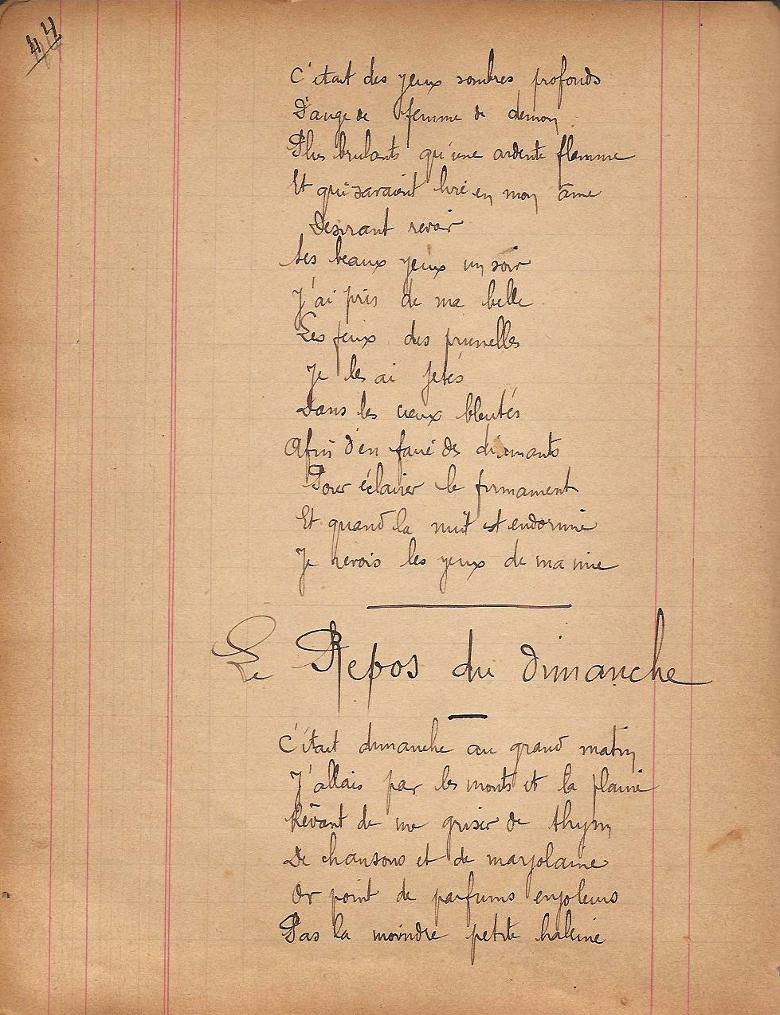 44
C'était des yeux sombres profonds
D'ange de femme de demon
Plus brulants qu'une ardente flamme
Et qui savaient lire en mon âme
Desirant revoir
Ses beaux yeux un soir
J'ai pris de ma belle
Les feux des prunelles
Je les ai jetés
Dans les cieux bleutés
Afin d'en faire des diamants
Pour éclairer le firmament
Et quand la nuit est endormie
Je revois les yeux de ma mie
Le Repos du dimanche
C'était dimanche au grand matin
J'allais par les monts et la plaine
Rêvant de me griser de thym
De chansons et de marjolaine
Or point de parfums enjoleurs
Pas la moindre petite haleine